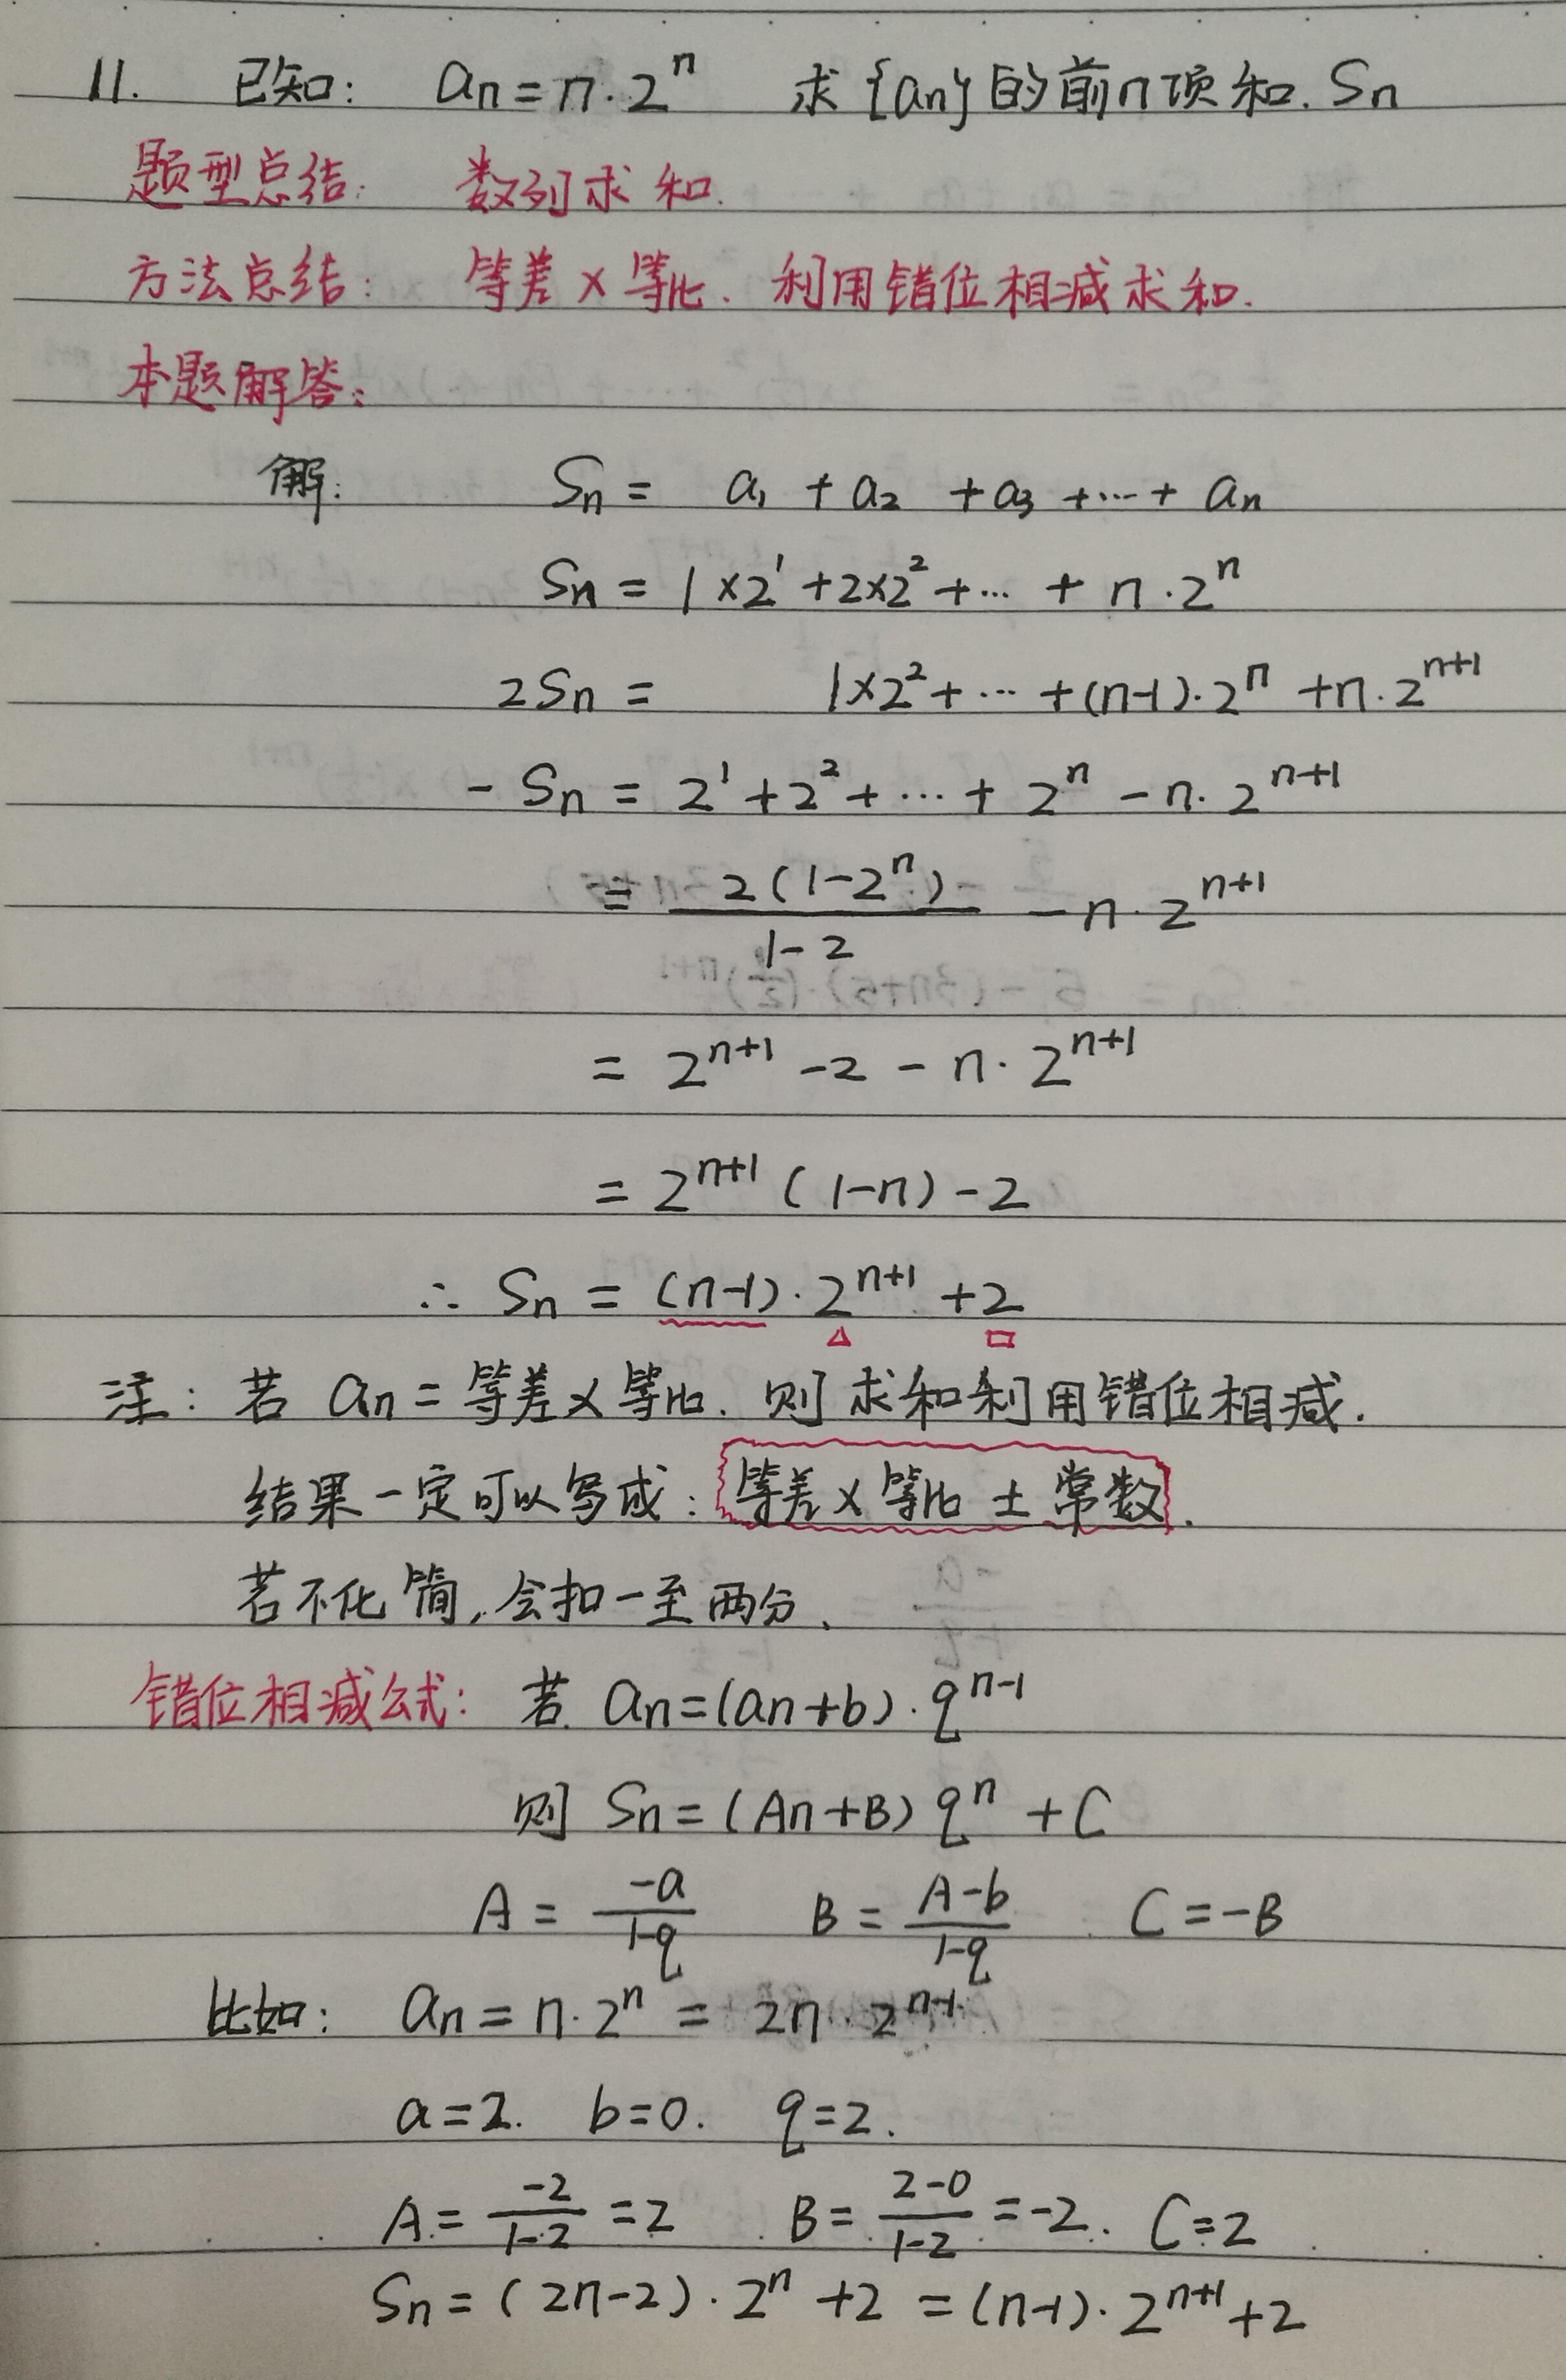 11. 已知: an=n·2^n 求{an}的前n项和.Sn
题型总结: 数列求和.
方法总结: 等差×等比. 利用错位相减求和.
本题解答:
解: Sn = a₁ + a₂ + a₃ + ··· + an
Sn = 1×2^1 + 2×2^2 + ··· + n·2^n
2Sn = 1×2^2 + ··· + (n-1)·2^n + n·2^(n+1)
- Sn = 2^1 + 2^2 + ··· + 2^n - n·2^(n+1)
= 2(1-2^n)/(1-2) - n·2^(n+1)
= 2^(n+1) - 2 - n·2^(n+1)
= 2^(n+1) (1-n) - 2
∴ Sn = (n-1)·2^(n+1) + 2
注: 若 an = 等差×等比. 则求和利用错位相减.
结果一定可以写成: 等差×等比 ± 常数.
若不化简, 会扣一至两分.
错位相减公式: 若 an=(an+b)·q^(n-1)
则 Sn = (An+B) q^n + C
A = -a/(1-q) B = (A-b)/(1-q) C = -B
比如: an = n·2^n = 2n·2^(n-1)
a=2. b=0. q=2.
A = -2/(1-2) = 2 B = (2-0)/(1-2) = -2. C=2
Sn = (2n-2)·2^n + 2 = (n-1)·2^(n+1) + 2